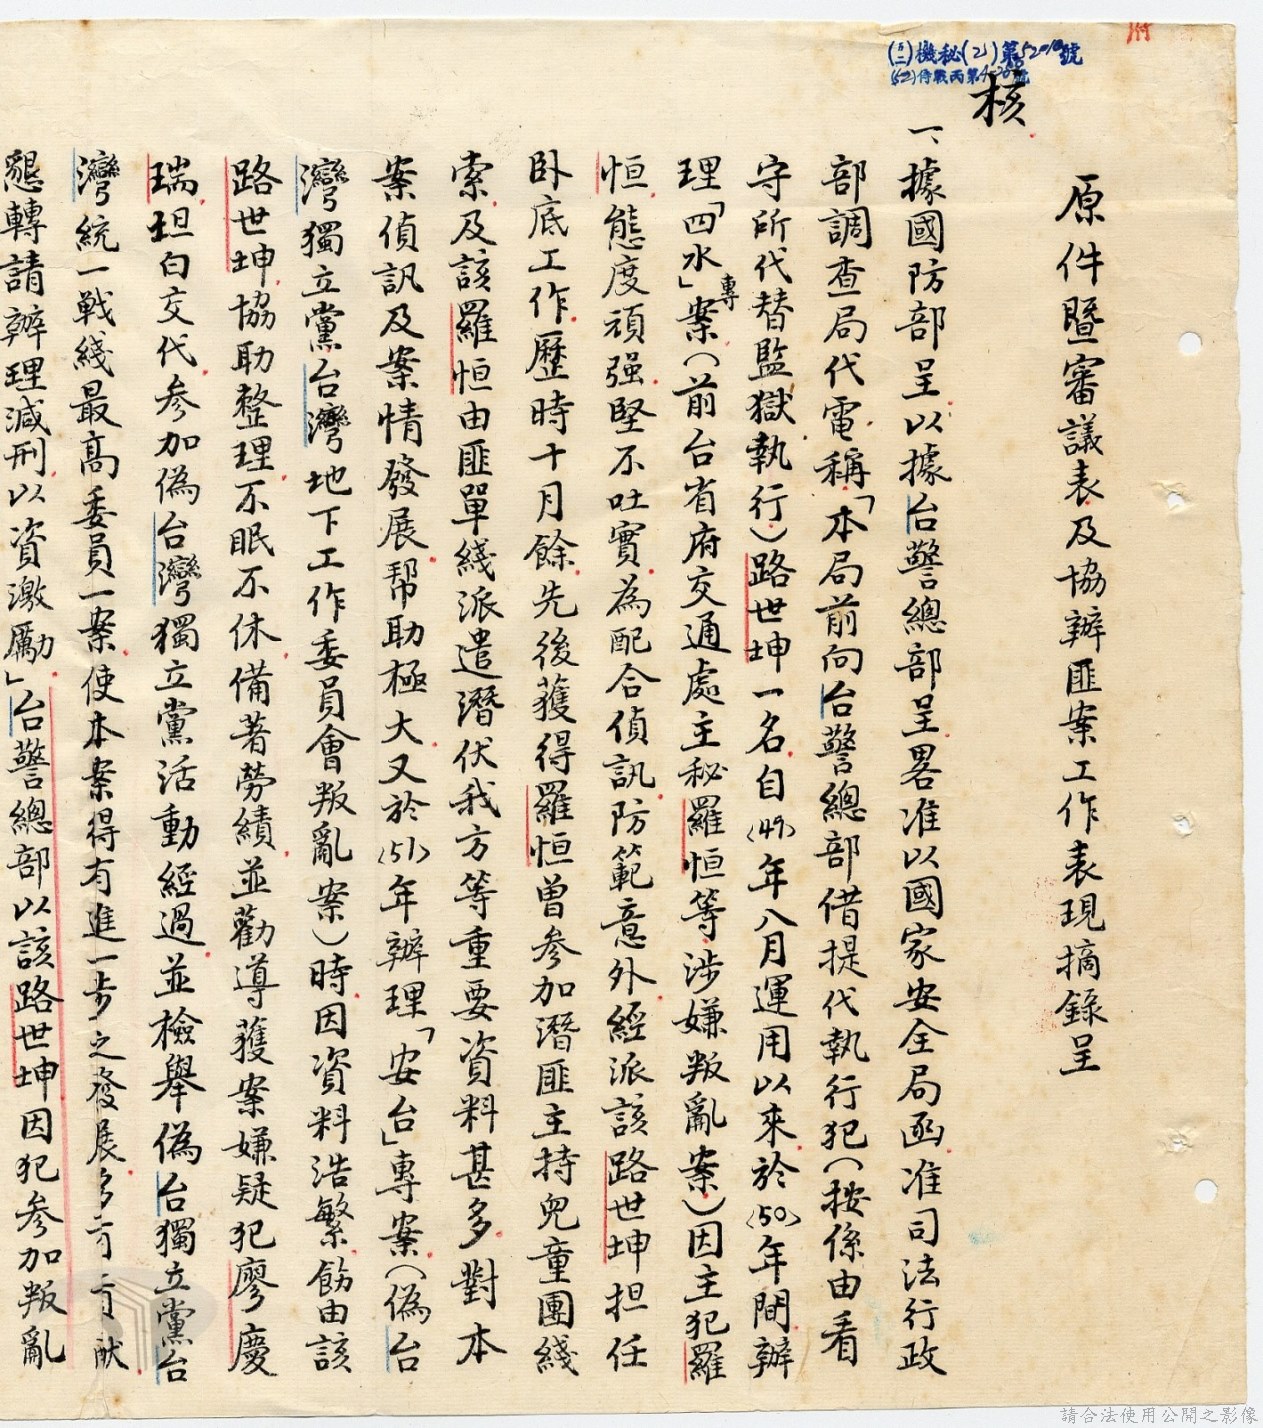 (五二)機秘(乙)第52010號
(52)侍戰丙第
核
原件暨審議表及協辦匪案工作表現摘錄呈
一、據國防部呈以據台警總部呈畧准以國家安全局函准司法行政
部調查局代電稱「本局前向台警總部借提代執行犯(按係由看
守所代替監獄執行)路世坤一名自(49)年八月運用以來於(50)年間辦
理「四水」專案(前台省府交通處主秘羅恒等涉嫌叛亂案)因主犯羅
恒態度頑强堅不吐實為配合偵訊防範意外經派該路世坤担任
卧底工作歷時十月餘先後獲得羅恒曾參加潛匪主持兒童團綫
索及該羅恒由匪單綫派遣潛伏我方等重要資料甚多對本
案偵訊及案情發展帮助極大又於(51)年辦理「安台」專案(偽台
灣獨立黨台灣地下工作委員會叛亂案)時因資料浩繁飭由該
路世坤協助整理不眠不休備著勞績並勸導獲案嫌疑犯廖慶
瑞坦白交代參加偽台灣獨立黨活動經過並檢舉偽台獨立黨台
灣統一戰綫最高委員一案使本案得有進一步之發展多有貢献
懇轉請辦理減刑以資激勵」台警總部以該路世坤因犯參加叛亂
請合法使用公開之影像